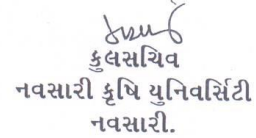 કુલસચિવ
નવસારી કૃષિ યુનિવર્સિટી
નવસારી.